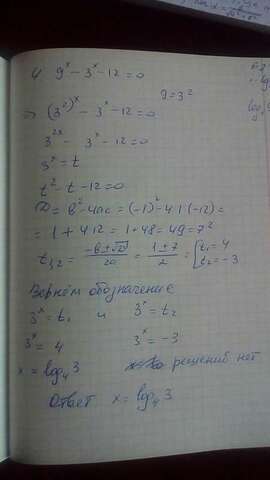 4 9^x - 3^x - 12 = 0
9 = 3^2
=> (3^2)^x - 3^x - 12 = 0
3^2x - 3^x - 12 = 0
3^x = t
t^2 - t - 12 = 0
D = b^2 - 4ac = (-1)^2 - 4·1·(-12) =
= 1 + 4·12 = 1 + 48 = 49 = 7^2
t1,2 = (-b ± √D)/2a = (1 ± 7)/2 = [t1 = 4 t2 = -3
Вернём обозначение
3^x = t1 и 3^x = t2
3^x = 4 3^x = -3
x = log4 3 решений нет
Ответ x = log4 3